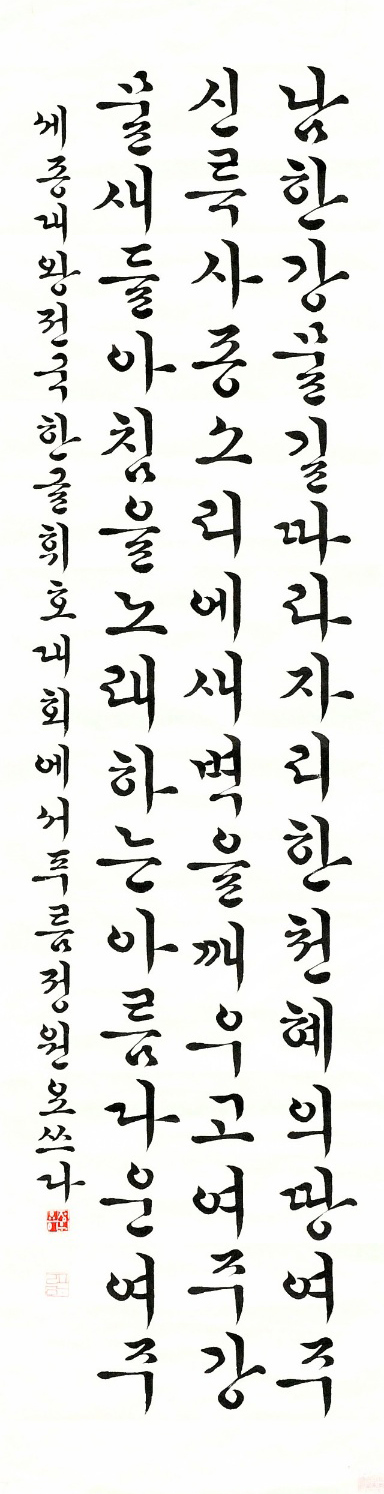 남한강물길따라자리한천혜의땅여주
신륵사종소리에새벽을깨우고여주강
물새들아침을노래하는아름다운여주
세종대왕전국한글휘호대회에서푸름정원요쓰다